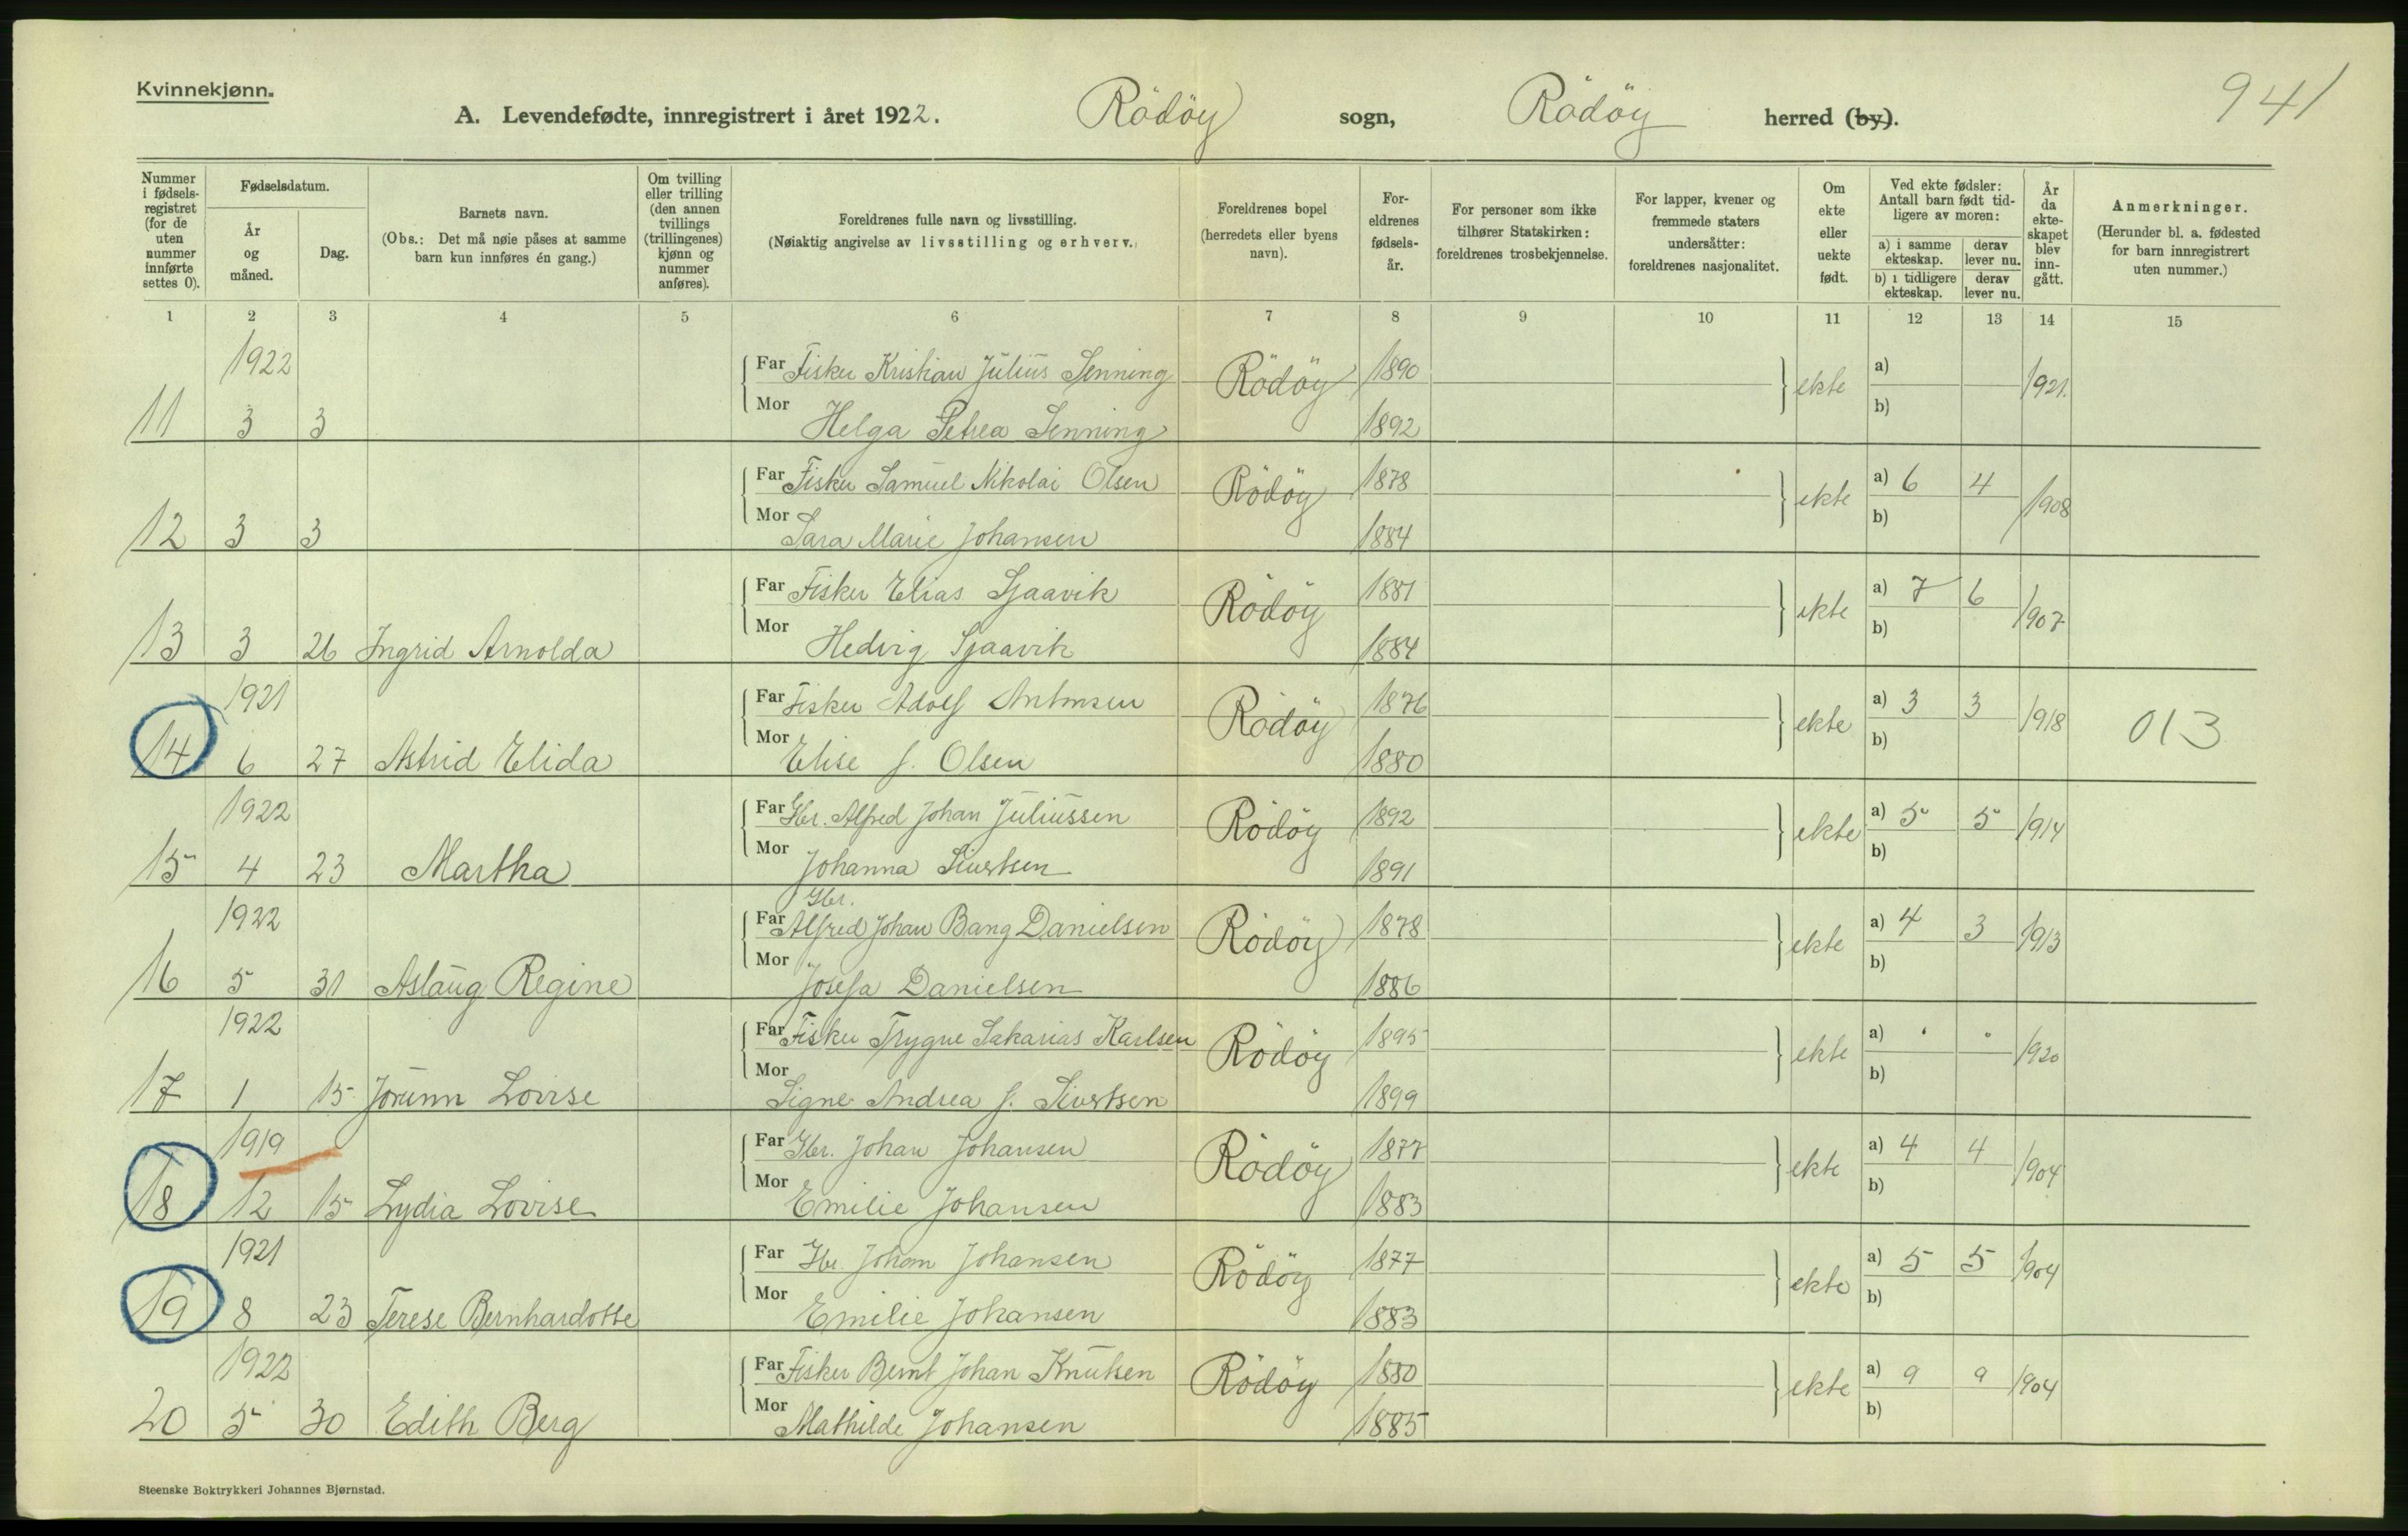 Kvinnekjønn.
941
A. Levendefødte, innregistrert i året 1922. Rödöy sogn, Rödöy herred (by).
Nummer i fødsels-registret (for de uten nummer innførte settes 0).
Fødselsdatum.
År og måned.
Dag.
Barnets navn.
(Obs.: Det må nøie påses at samme barn kun innføres én gang.)
Om tvilling eller trilling (den annen tvillings (trillingenes) kjønn og nummer anføres).
Foreldrenes fulle navn og livsstilling.
(Nøiaktig angivelse av livsstilling og erhverv.)
Foreldrenes bopel (herredets eller byens navn).
For-eldrenes fødsels-år.
For personer som ikke tilhører Statskirken: foreldrenes trosbekjennelse.
For lapper, kvener og fremmede staters undersåtter: foreldrenes nasjonalitet.
Om ekte eller uekte født.
Ved ekte fødsler: Antall barn født tid-ligere av moren:
a) i samme ekteskap.
derav lever nu.
b) i tidligere ekteskap.
derav lever nu.
År da ekte-skapet blev inn-gått.
Anmerkninger.
(Herunder bl. a. fødested for barn innregistrert uten nummer.)
1 2 3 4 5 6 7 8 9 10 11 12 13 14 15
1922 Far Fisker Kristian Julius Senning Rödöy 1890 ekte a) 1921.
11 3 3 Mor Helga Petrea Senning 1892 b)
Far Fisker Samuel Nikolai Olsen Rödöy 1878 ekte a) 6 4 1908
12 3 3 Mor Sara Marie Johansen 1884 b)
Far Fisker Elias Sjaavik Rödöy 1881 ekte a) 7 6 1907
13 3 26 Ingrid Arnolda Mor Hedvig Sjaavik 1884 b)
1921 Far Fisker Adolf Antonsen Rödöy 1876 ekte a) 3 3 1918 013
14 6 27 Astrid Elida Mor Elise J. Olsen 1880 b)
1922 Far Gbr. Alfred Johan Juliussen Rödöy 1892 ekte a) 5 5 1914
15 4 23 Martha Mor Johanna Siversen 1891 b)
Gbr.
1922 Far Alfred Johan Bang Danielsen Rödöy 1878 ekte a) 4 3 1913
16 5 31 Aslaug Regine Mor Josefa Danielsen 1886 b)
1922 Far Fisker Trygve Sakarias Karlsen Rödöy 1895 ekte a) 1920
17 1 15 Jorunn Lovise Mor Signe Andrea J. Sivertsen 1899 b)
1919 Far Gbr. Johan Johansen Rödöy 1877 ekte a) 4 4 1904
18 12 15 Lydia Lovise Mor Emilie Johansen 1883 b)
1921 Far Gbr. Johan Johansen Rödöy 1877 ekte a) 5 5 1904
19 8 23 Terese Bernhardotte Mor Emilie Johansen 1883 b)
1922 Far Fisker Bernt Johan Knutsen Rödöy 1880 ekte a) 9 9 1904
20 5 30 Edith Berg Mor Mathilde Johansen 1885 b)
Steenske Boktrykkeri Johannes Bjørnstad.